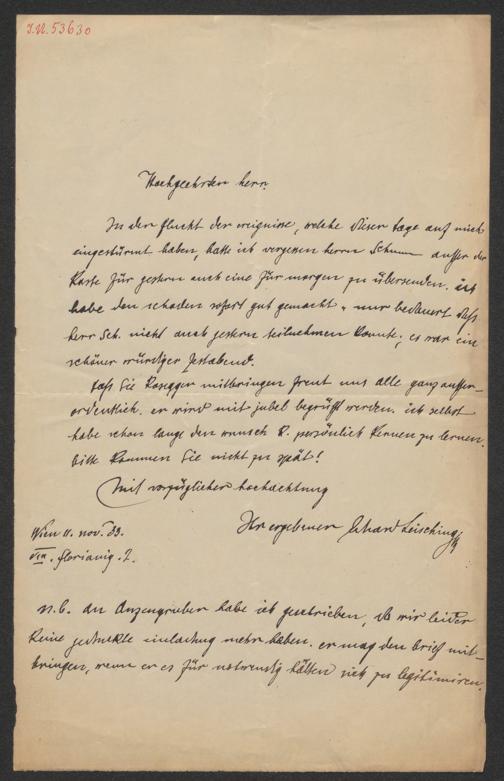 I.N. 53630
Hochgeehrter herr
In der flucht der ereignisse, welche dieser tage auf mich
eingestürmt haben, hatte ich vergessen herrn Schumm ausser der
Karte für gestern auch eine für morgen zu übersenden. ich
habe den schaden sofort gut gemacht u. nur bedauert dass
herr Sch. nicht auch gestern teilnehmen konnte; es war ein
schöner würdiger festabend.
Dass Sie Rosegger mitbringen freut uns alle ganz ausser-
ordentlich. er wird mit jubel begrüsst werden. ich selbst
habe schon lange den wunsch R. persönlich kennen zu lernen.
bitte kommen Sie nicht zu spät!
Mit vorzüglicher hochachtung
Ihr ergebener Eduard Leisching
Wien 11. nov. 83.
VIII. florianig. 2.
n.b. an Anzengruber habe ich geschrieben, da wir leider
keine gedruckte einladung mehr haben. er mag den brief mit-
bringen, wenn er es für notwendig hält sich zu legitimiren.